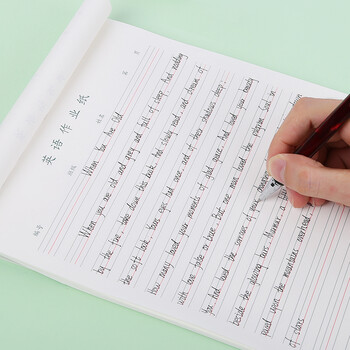 英语作业纸
班级
姓名
编号
When You Are Old
When you are old and grey and full of sleep, And nodding
by the fire, take down this book, And slowly read, and dream of
the soft look, Your eyes had once, and of their shadows deep;
How many loved your moments of glad grace, And loved your beauty
with love false or true, But one man loved the pilgrim soul in
you, And loved the sorrows of your changing
beside the glowing bars, Murmur,
upon the mountains overhead
of stars.